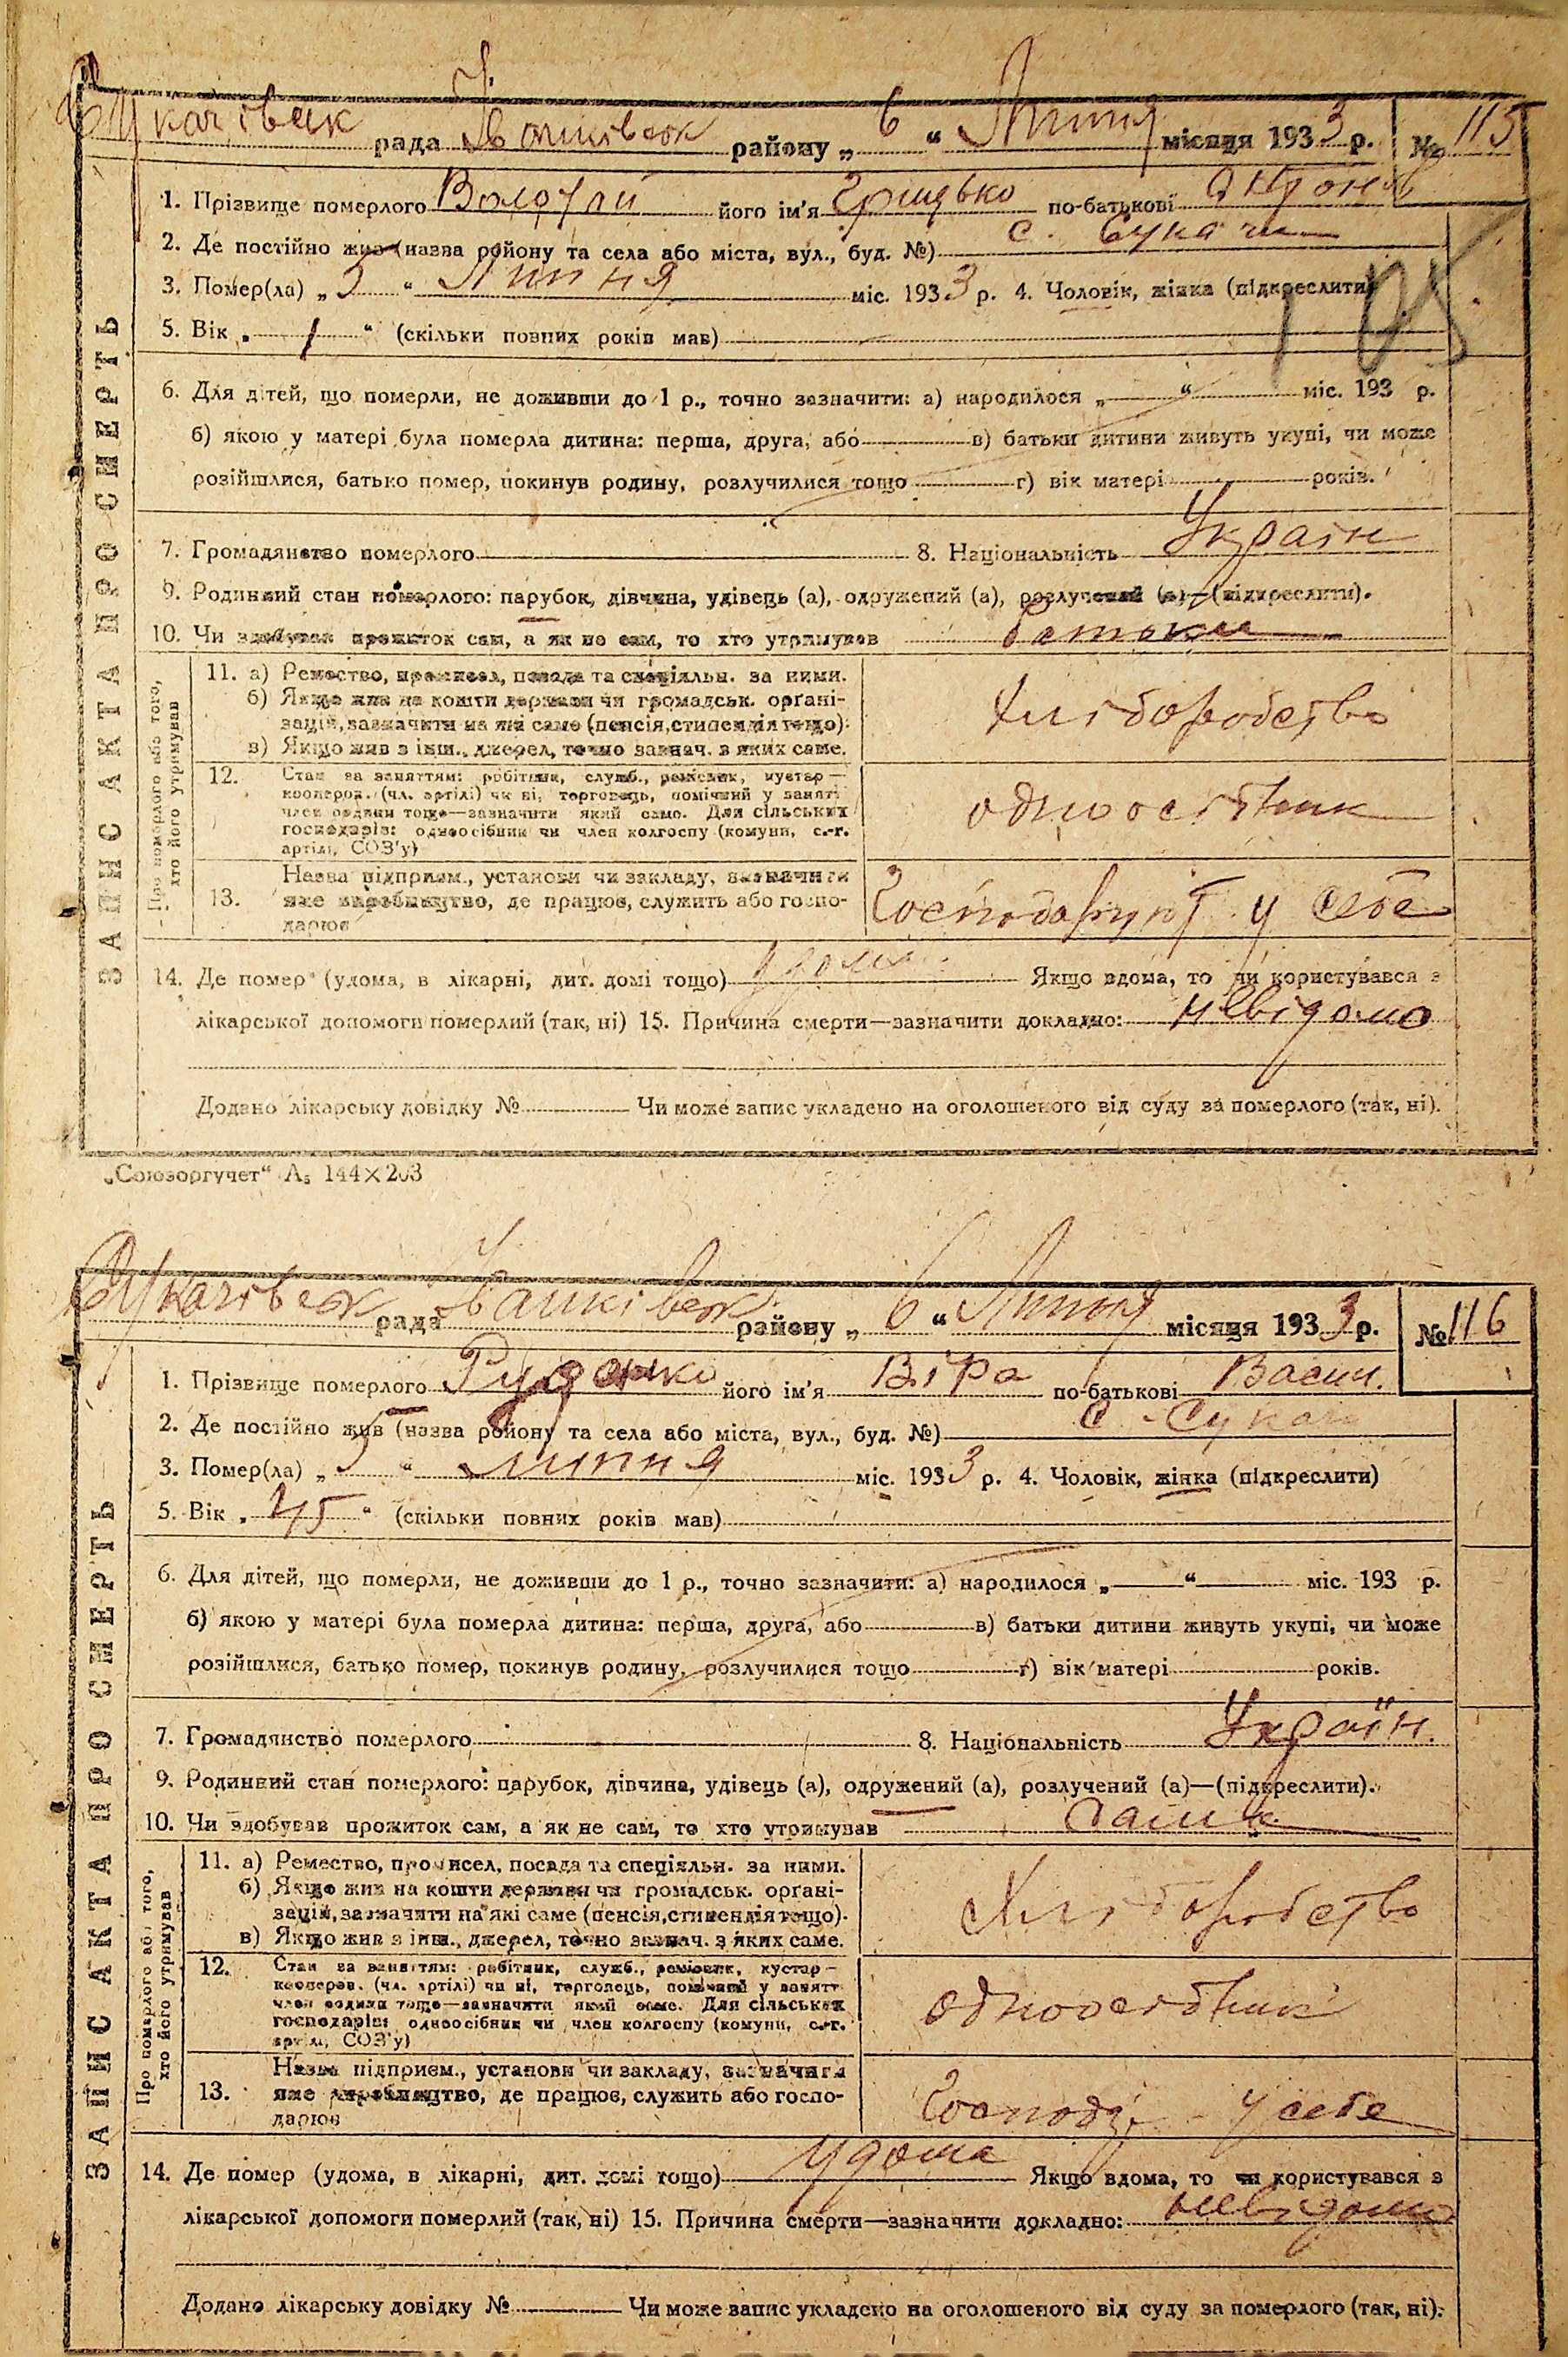 рада району „ 6 “ Липня місяця 1933 р. № 115
1. Прізвище померлого його ім'я Грицько по-батькові Антонов
2. Де постійно жив (назва району та села або міста, вул., буд. №) с. Букачи
3. Помер(ла) „ 5 “ Липня міс. 1933 р. 4. Чоловік, жінка (підкреслити)
5. Вік „ 1 “ (скільки повних років мав)
6. Для дітей, що померли, не доживши до 1 р., точно зазначити: а) народилося „ “ міс. 193 р.
б) якою у матері була померла дитина: перша, друга, або в) батьки дитини живуть укупі, чи може
розійшлися, батько помер, покинув родину, розлучилися тощо г) вік матері років.
7. Громадянство померлого 8. Національність Україн
9. Родинний стан померлого: парубок, дівчина, удівець (а), одружений (а), розлучений (а)—(підкреслити).
10. Чи здобував прожиток сам, а як не сам, то хто утримував батьки
ЗАПИС АКТА ПРО СМЕРТЬ
Про померлого або того, хто його утримував
11. а) Ремество, промисел, посада та спеціяльн. за ними.
б) Якщо жив на кошти держави чи громадськ. органі-
зацій, зазначити на які саме (пенсія, стипендія тощо).
в) Якщо жив з інш. джерел, точно зазнач. з яких саме.
Хліборобство
12. Стан за заняттям: робітник, служб., ремісник, кустар—
кооперов. (чл. артілі) чи ні, торговець, помічний у занятті
член родини тощо—зазначити який саме. Для сільських
господарів: одноосібник чи член колгоспу (комуни, с.-г.
артілі, СОЗ'у)
одноосібник
13. Назва підприєм., установи чи закладу, зазначити
яке виробництво, де працює, служить або госпо-
дарює
Господарюют у себе
14. Де помер (удома, в лікарні, дит. домі тощо) удома Якщо вдома, то чи користувався з
лікарської допомоги померлий (так, ні) 15. Причина смерти—зазначити докладно: невідомо
Додано лікарську довідку № Чи може запис укладено на оголошеного від суду за померлого (так, ні).
„Союзоргучет“ А₅ 144×203
рада району „ 6 “ Липня місяця 1933 р. № 116
1. Прізвище померлого його ім'я Віра по-батькові Васил.
2. Де постійно жив (назва району та села або міста, вул., буд. №) с.
3. Помер(ла) „ 5 “ Липня міс. 1933 р. 4. Чоловік, жінка (підкреслити)
5. Вік „ 45 “ (скільки повних років мав)
6. Для дітей, що померли, не доживши до 1 р., точно зазначити: а) народилося „ “ міс. 193 р.
б) якою у матері була померла дитина: перша, друга, або в) батьки дитини живуть укупі, чи може
розійшлися, батько помер, покинув родину, розлучилися тощо г) вік матері років.
7. Громадянство померлого 8. Національність Україн.
9. Родинний стан померлого: парубок, дівчина, удівець (а), одружений (а), розлучений (а)—(підкреслити).
10. Чи здобував прожиток сам, а як не сам, то хто утримував
ЗАПИС АКТА ПРО СМЕРТЬ
Про померлого або того, хто його утримував
11. а) Ремество, промисел, посада та спеціяльн. за ними.
б) Якщо жив на кошти держави чи громадськ. органі-
зацій, зазначити на які саме (пенсія, стипендія тощо).
в) Якщо жив з інш. джерел, точно зазнач. з яких саме.
Хліборобство
12. Стан за заняттям: робітник, служб., ремісник, кустар—
кооперов. (чл. артілі) чи ні, торговець, помічний у занятті
член родини тощо—зазначити який саме. Для сільських
господарів: одноосібник чи член колгоспу (комуни, с.-г.
артілі, СОЗ'у)
одноосібник
13. Назва підприєм., установи чи закладу, зазначити
яке виробництво, де працює, служить або госпо-
дарює
у себе
14. Де помер (удома, в лікарні, дит. домі тощо) удома Якщо вдома, то чи користувався з
лікарської допомоги померлий (так, ні) 15. Причина смерти—зазначити докладно: невідомо
Додано лікарську довідку № Чи може запис укладено на оголошеного від суду за померлого (так, ні).